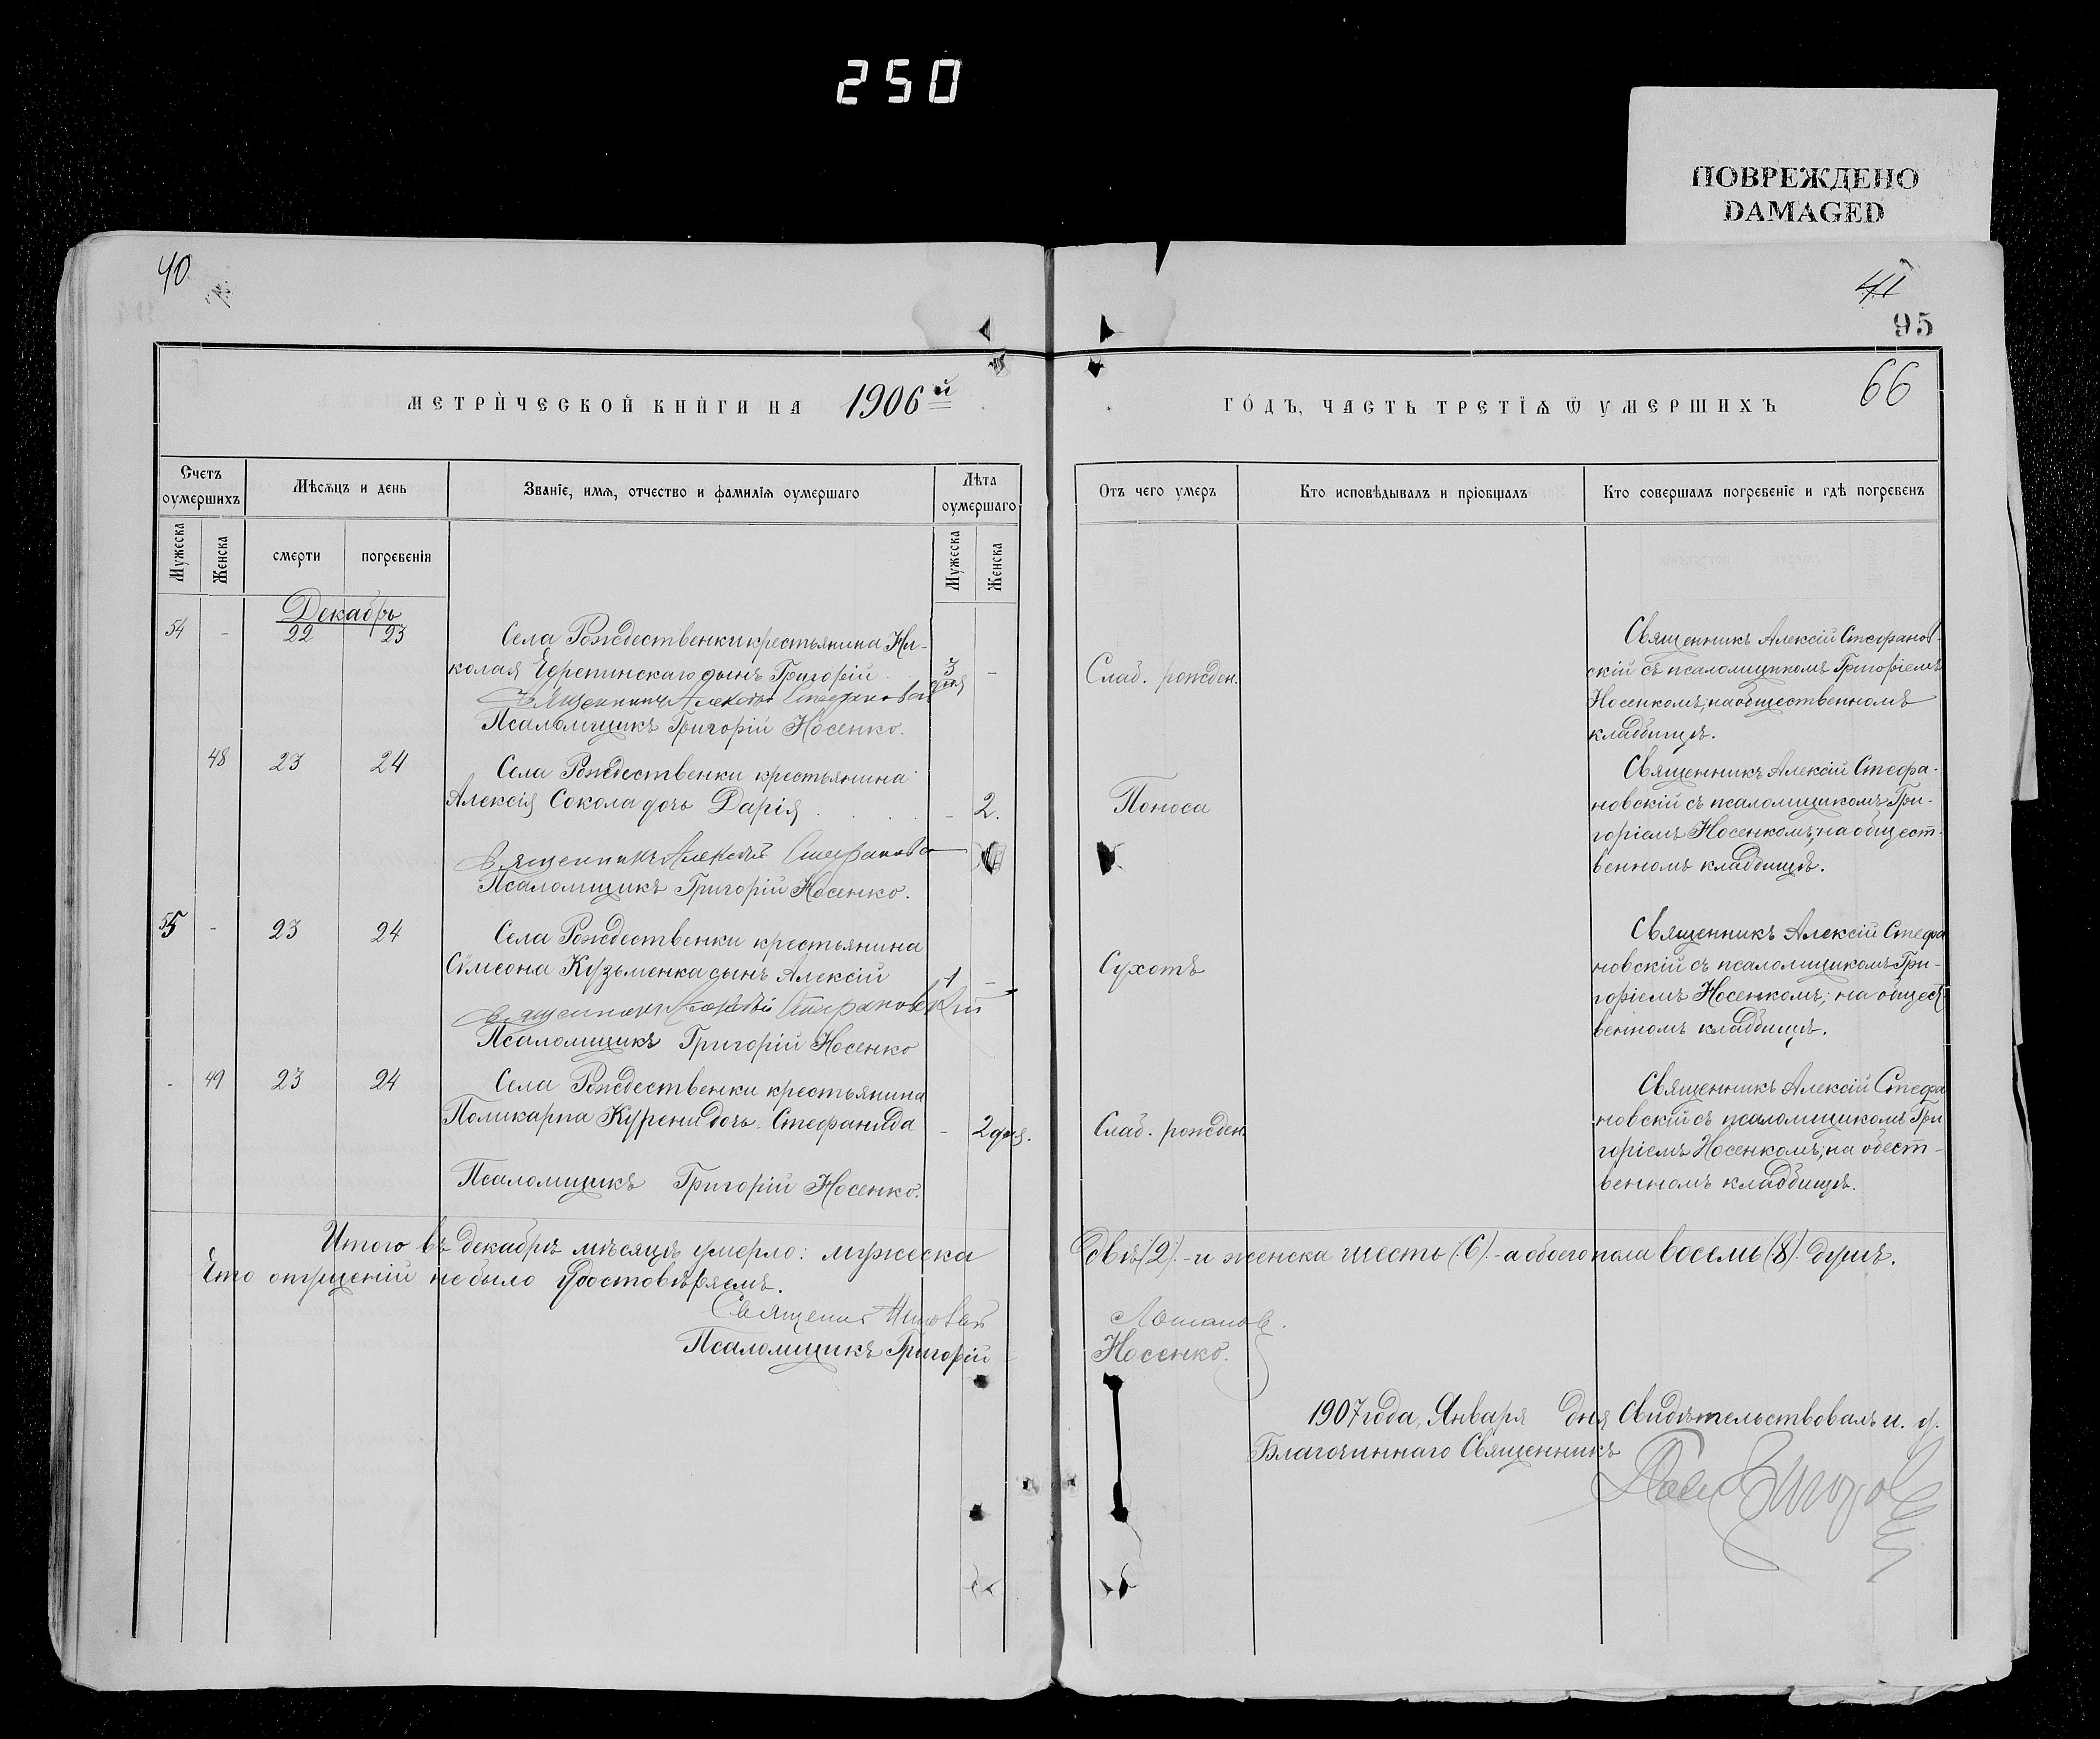 250
ПОВРЕЖДЕНО
DAMAGED
40
41
95
66
МЕТРИЧЕСКОЙ КНИГИ НА 1906й
ГОДЪ, ЧАСТЬ ТРЕТІѦ Ѿ УМЕРШИХЪ
Счетъ оумершихъ
Мѣсѧцъ и день
Званіе, имѧ, отчество и фамиліѧ оумершаго
Лѣта оумершаго
Мужеска
Женска
смерти
погребенія
Мужеска
Женска
Отъ чего умеръ
Кто исповѣдывалъ и пріобщалъ
Кто совершалъ погребеніе и гдѣ погребенъ
Декабрь
54 - 22 23
Села Рождественки крестьянина Ни-
колая Ефрепинскаго сынъ Григорій
3 дня -
Священникъ Алексій Стефановс
Псаломщикъ Григорій Носенко.
Слаб. рожден.
Священникъ Алексій Стефанов-
скій съ псаломщикомъ Григоріемъ
Носенкомъ; на общественномъ
кладбищѣ.
48 23 24
Села Рождественки крестьянина
Алексія Сокола дочь Дарія
- 2.
Священникъ Алексій Стефанов
Псаломщикъ Григорій Носенко.
Поноса
Священникъ Алексій Стефа-
новскій съ псаломщикомъ Гри-
горіемъ Носенкомъ; на общест-
венномъ кладбищѣ.
55 - 23 24
Села Рождественки крестьянина
Симеона Кузьменка сынъ Алексій
1 -
Священникъ Алексій Стефановскій
Псаломщикъ Григорій Носенко
Сухотъ
Священникъ Алексій Стефа
новскій съ псаломщикомъ Гри-
горіемъ Носенкомъ; на общест
венномъ кладбищѣ.
- 49 23 24
Села Рождественки крестьянина
Поликарпа Курени дочь Стефанида
- 2 дня.
Псаломщикъ Григорій Носенко.
Слаб. рожден.
Священникъ Алексій Стефа
новскій съ псаломщикомъ Гри
горіемъ Носенкомъ; на обест-
венномъ кладбищѣ.
Итого въ декабрѣ мѣсяцѣ умерло: мужеска
двѣ (2). - и женска шесть (6). - а обоего пола восемь (8). душъ.
Что опущеній не было удостовѣряемъ.
Священ
Псаломщикъ Григорій
Носенко.
1907 года, Января дня Свидѣтельствовалъ и. д.
Благочиннаго Священникъ